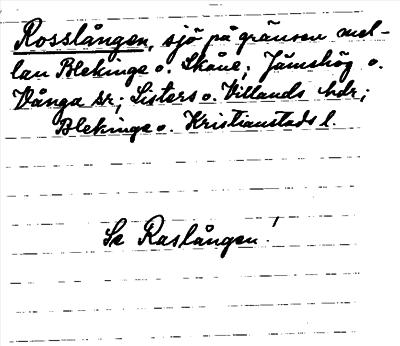 Rosslången, sjö på gränsen mel-
lan Blekinge o. Skåne; Jämshög o.
Vånga sr; Listers o. Villands hdr;
Blekinge o. Kristianstads l.
Se Raslången!